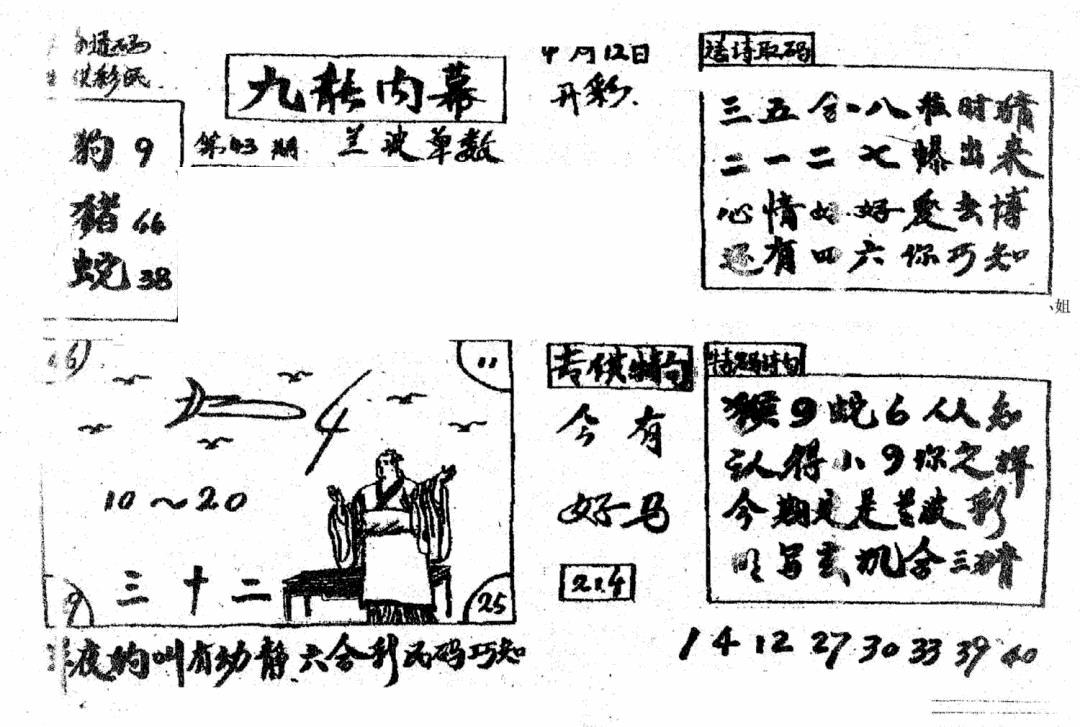 供彩民
狗9
猪66
蛇38
九龙内幕
第43期 兰波单数
4月12日
开彩
送诗取码
三五合八准时猜
二一二七爆出来
心情好好爱去博
还有四六你巧知
姐
11
4
10~20
三十二
9
25
夜狗叫有动静六合利民码巧知
专供特句
今有
好马
214
特码诗句
猴9蛇6从
认得小9你之
今期是兰波彩
写玄机合三
1 4 12 27 30 33 39 40